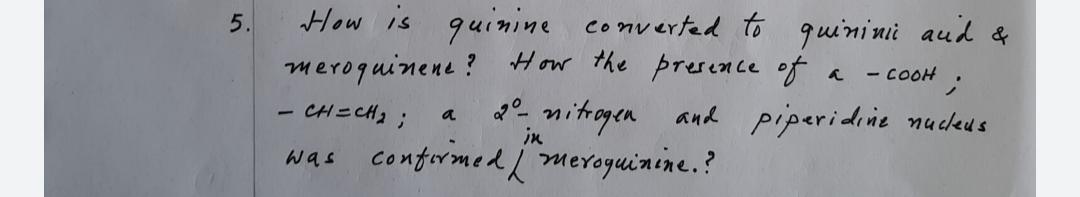 5. How is quinine converted to quininic acid &
meroquinene? How the presence of a -COOH;
- CH=CH₂; a 2°- nitrogen and piperidine nucleus
was confirmed in meroquinine.?